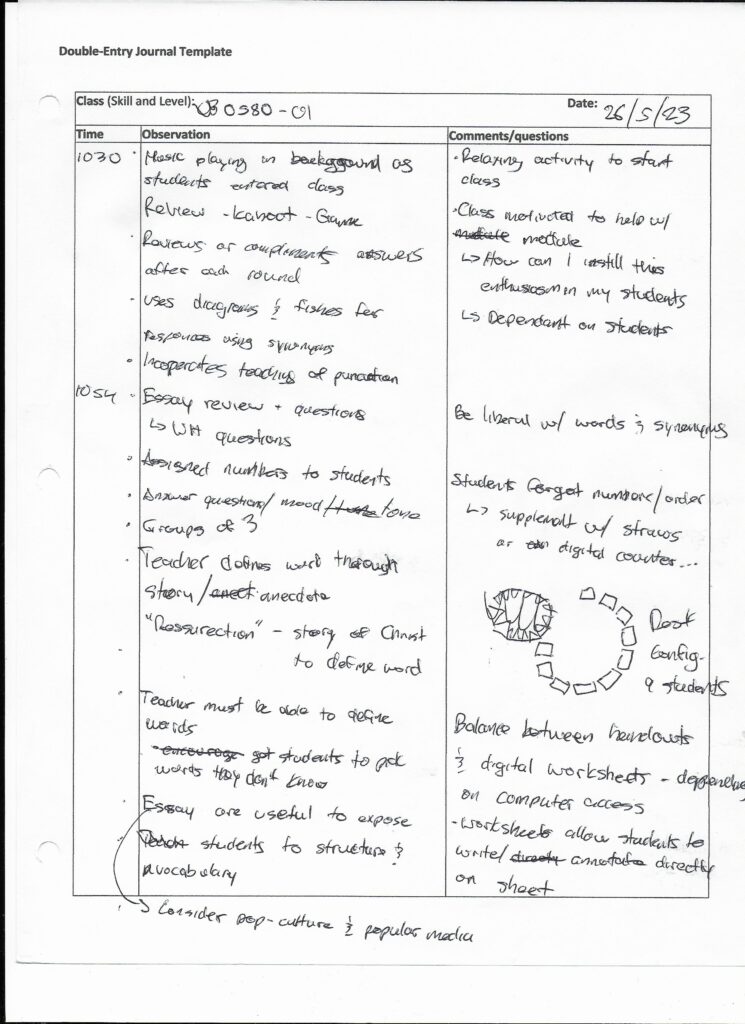 Double-Entry Journal Template
Class (Skill and Level): 0380-01
Date: 26/5/23
Time
Observation
Comments/questions
1030 Music playing in background as
students entered class
Review - Kahoot - Game
Reviews or complements answers
after each round
uses diagrams & fishes for
responses using synonyms
Incoperates teaching of
1054 Essay review + questions
↳ WH questions
Assigned numbers to students
Answer questions/mood/tone
Groups of 3
Teacher defines word through
story/anecdote
"Ressurection" - story of Christ
to define word
Teacher must be able to define
words
got students to pick
words they don't know
Essay are useful to expose
students to structure &
vocabulary
↳ Consider pop-culture & popular media
· Relaxing activity to start
class
· Class motivated to help w/
module module
↳ How can I instill this
enthusiasm in my students
↳ Dependant on students
Be liberal w/ words & synonyms
Students forgot numbers/order
↳ supplement w/ straws
or digital counter...
Desk
Config-
9 students
Balance between handouts
& digital worksheets - depending
on computer access
- Worksheets allow students to
write/directly annotate directly
on sheet